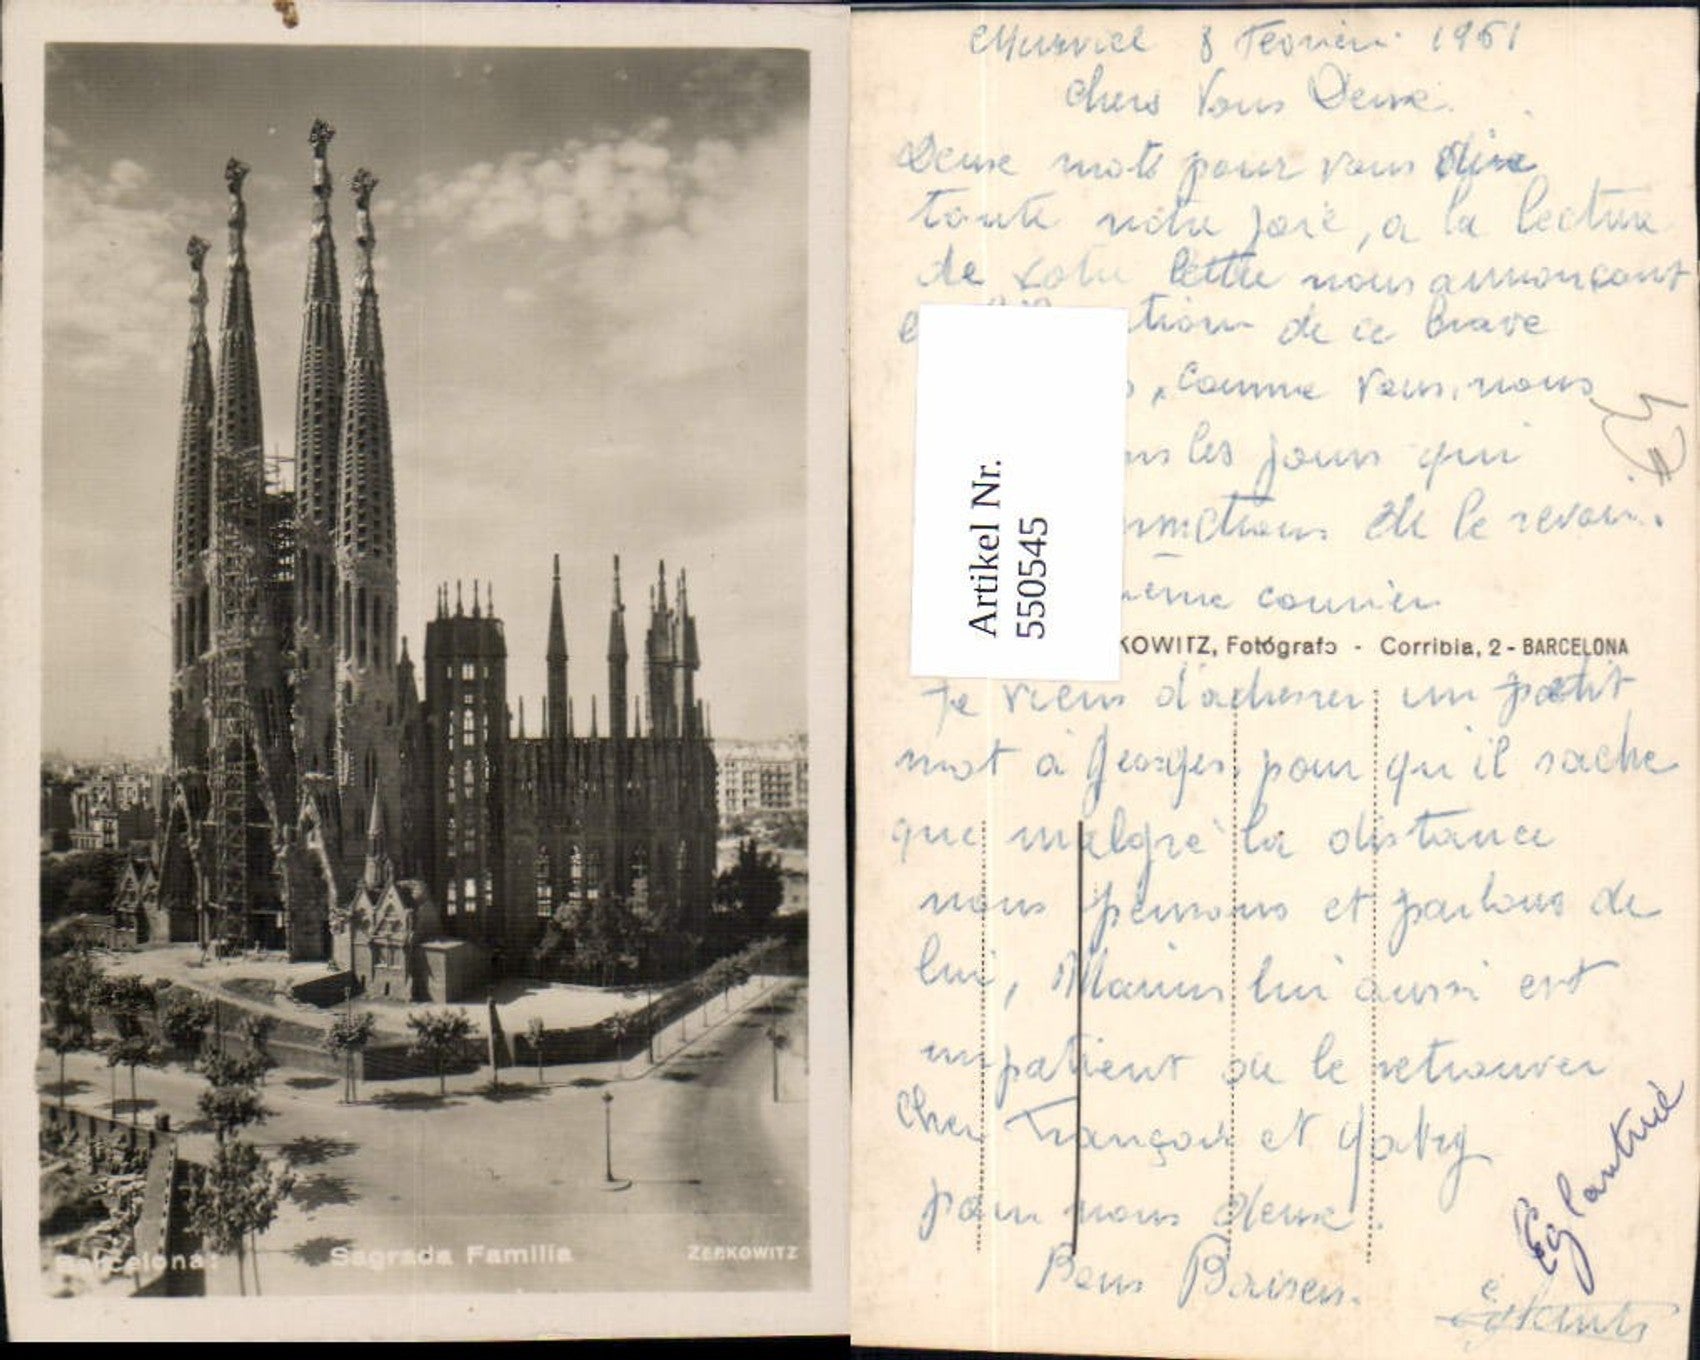 Barcelona: Sagrada Familia ZERKOWITZ
8 Février 1961
Chers Vous Deux.
Deux mots pour vous dire
toute notre joie, a la lecture
de votre lettre nous annonçant
de ce brave
, comme vous, nous
les jours qui
de le revoir.
même courrier
KOWITZ, Fotógrafo - Corribia, 2 - BARCELONA
Je viens d'adresser un petit
mot à Georges pour qu'il sache
que malgré la distance
nous pensons et parlons de
lui, Marius lui aussi est
impatient de le retrouver
Cher François et Gaby
pour nous deux.
Bons Baisers.
Eglantine
Artikel Nr.
550545